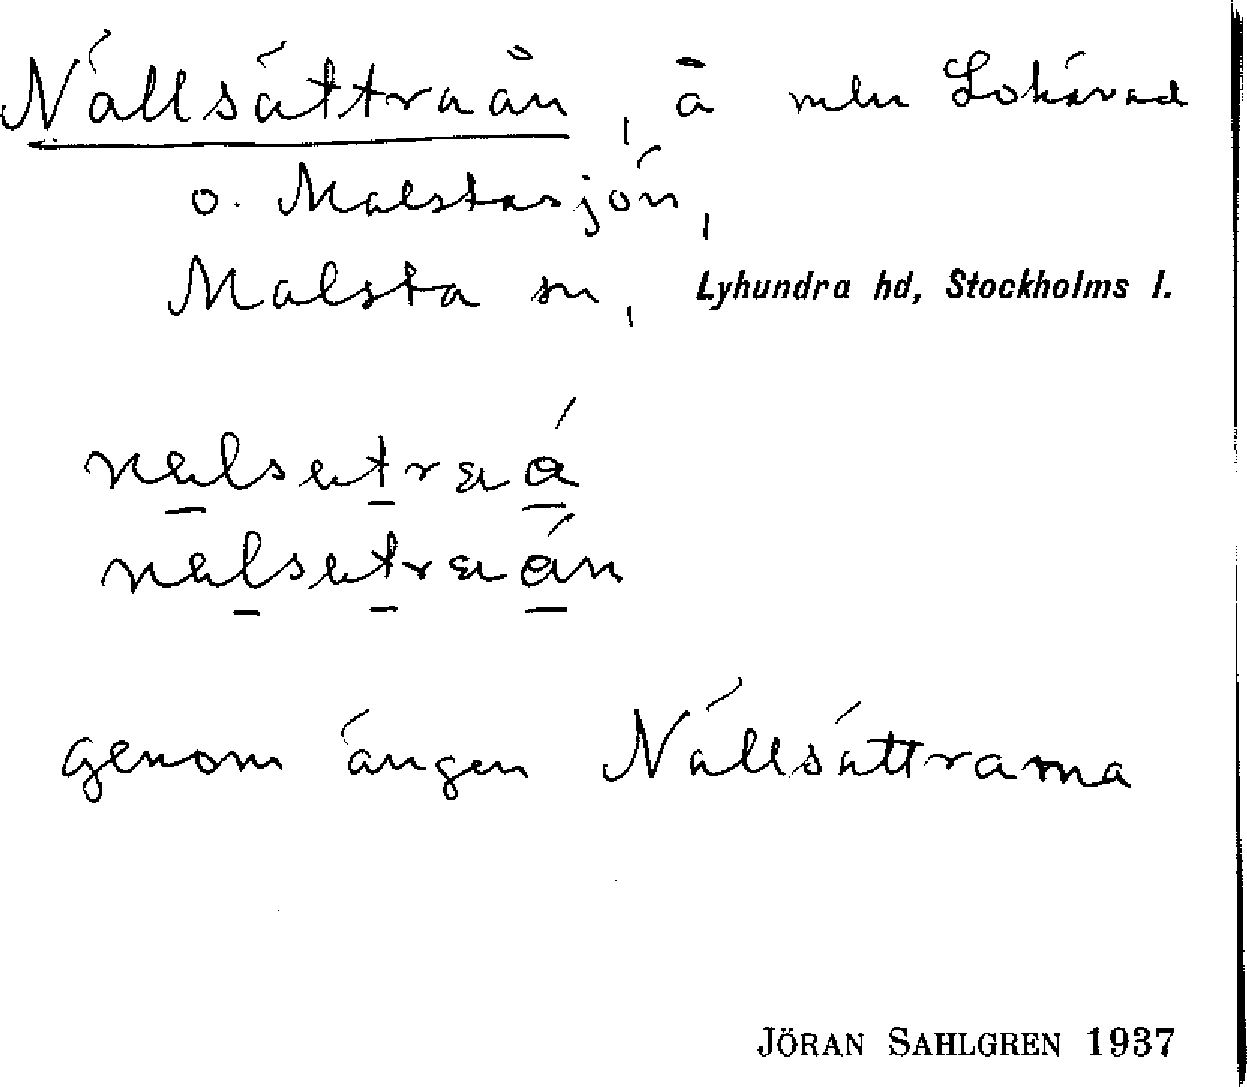 Nällsättraån, å mln Lohärad
o. Malstasjön,
Malsta sn, Lyhundra hd, Stockholms l.
nälsätraå
nälsätraån
genom ängen Nällsättrarna
JÖRAN SAHLGREN 1937